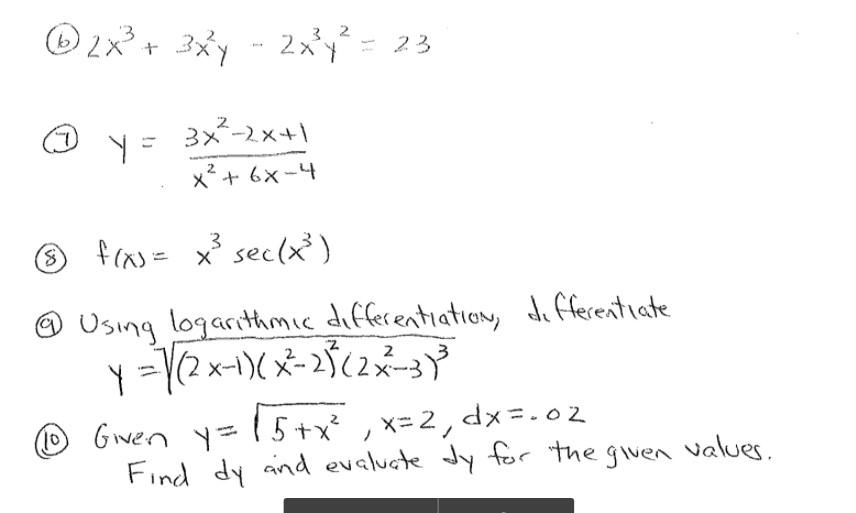 ⑥ 2x³ + 3x²y - 2x³y² = 23
⑦ y = 3x²-2x+1 / x² + 6x-4
⑧ f(x) = x³ sec(x³)
⑨ Using logarithmic differentiation, differentiate
y = √(2x-1)(x²-2)²(2x²-3)³
⑩ Given y = √5+x² , x=2, dx=.02
Find dy and evaluate dy for the given values.